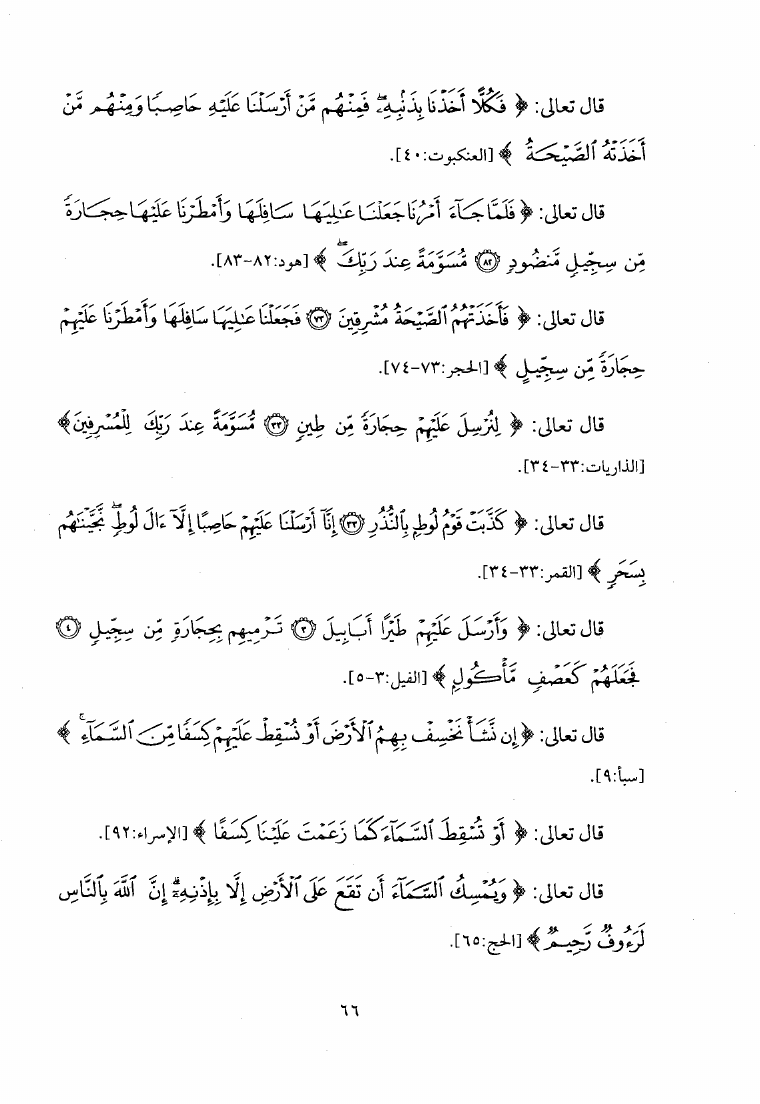 قال تعالى: ﴿ فَكُلًّا أَخَذْنَا بِذَنۢبِهِۦۖ فَمِنْهُم مَّنْ أَرْسَلْنَا عَلَيْهِ حَاصِبًا وَمِنْهُم مَّنْ
أَخَذَتْهُ ٱلصَّيْحَةُ ﴾ [العنكبوت:٤٠].
قال تعالى: ﴿ فَلَمَّا جَآءَ أَمْرُنَا جَعَلْنَا عَٰلِيَهَا سَافِلَهَا وَأَمْطَرْنَا عَلَيْهَا حِجَارَةً
مِّن سِجِّيلٍ مَّنضُودٍ ۝٨٢ مُّسَوَّمَةً عِندَ رَبِّكَۖ ﴾ [هود:٨٢-٨٣].
قال تعالى: ﴿ فَأَخَذَتْهُمُ ٱلصَّيْحَةُ مُشْرِقِينَ ۝٧٣ فَجَعَلْنَا عَٰلِيَهَا سَافِلَهَا وَأَمْطَرْنَا عَلَيْهِمْ
حِجَارَةً مِّن سِجِّيلٍ ﴾ [الحجر:٧٣-٧٤].
قال تعالى: ﴿ لِنُرْسِلَ عَلَيْهِمْ حِجَارَةً مِّن طِينٍ ۝٣٣ مُّسَوَّمَةً عِندَ رَبِّكَ لِلْمُسْرِفِينَ﴾
[الذاريات:٣٣-٣٤].
قال تعالى: ﴿ كَذَّبَتْ قَوْمُ لُوطٍۭ بِٱلنُّذُرِ ۝٣٣ إِنَّآ أَرْسَلْنَا عَلَيْهِمْ حَاصِبًا إِلَّآ ءَالَ لُوطٍۖ نَّجَّيْنَٰهُم
بِسَحَرٍ ﴾ [القمر:٣٣-٣٤].
قال تعالى: ﴿ وَأَرْسَلَ عَلَيْهِمْ طَيْرًا أَبَابِيلَ ۝٣ تَرْمِيهِم بِحِجَارَةٍ مِّن سِجِّيلٍ ۝٤
فَجَعَلَهُمْ كَعَصْفٍ مَّأْكُولٍۭ ﴾ [الفيل:٣-٥].
قال تعالى: ﴿إِن نَّشَأْ نَخْسِفْ بِهِمُ ٱلْأَرْضَ أَوْ نُسْقِطْ عَلَيْهِمْ كِسَفًا مِّنَ ٱلسَّمَآءِۚ ﴾
[سبأ:٩].
قال تعالى: ﴿ أَوْ تُسْقِطَ ٱلسَّمَآءَ كَمَا زَعَمْتَ عَلَيْنَا كِسَفًا ﴾ [الإسراء:٩٢].
قال تعالى: ﴿ وَيُمْسِكُ ٱلسَّمَآءَ أَن تَقَعَ عَلَى ٱلْأَرْضِ إِلَّا بِإِذْنِهِۦٓۗ إِنَّ ٱللَّهَ بِٱلنَّاسِ
لَرَءُوفٌ رَّحِيمٌ ﴾ [الحج:٦٥].
٦٦